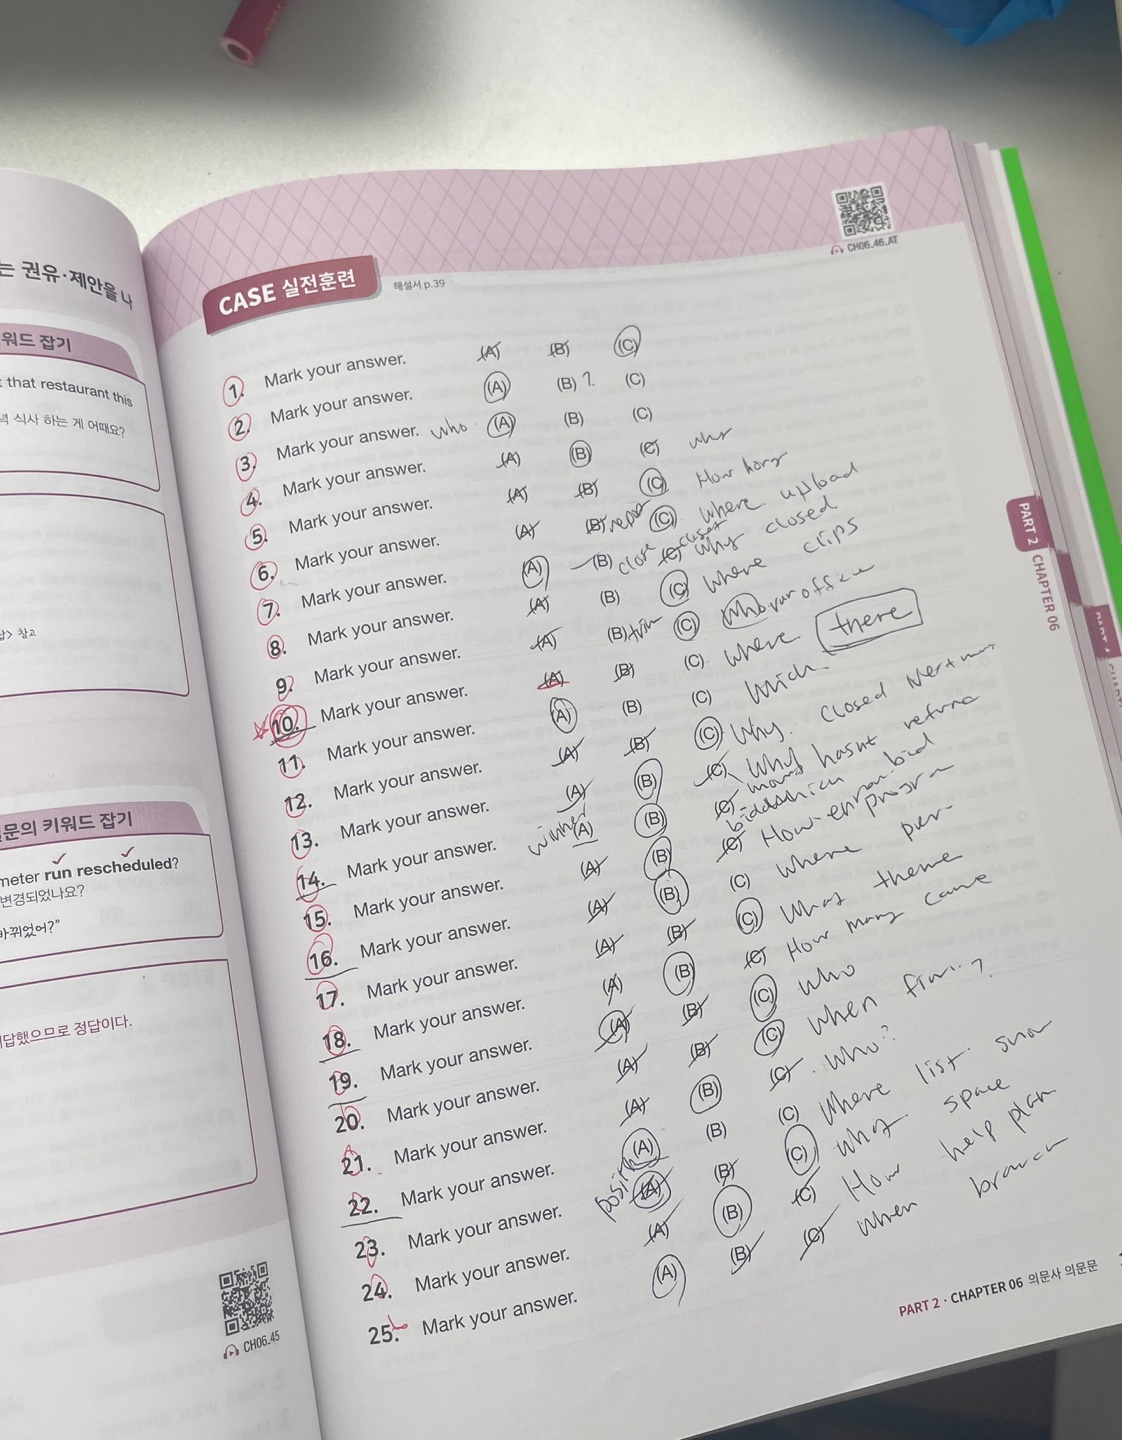 는 권유·제안을 나
워드 잡기
t that restaurant this
녁 식사 하는 게 어때요?
답> 참고
문의 키워드 잡기
meter run rescheduled?
변경되었나요?
바뀌었어?"
답했으므로 정답이다.
CH06_45
CH06_46_AT
CASE 실전훈련 해설서 p.39
1. Mark your answer. (A) (B) (C)
2. Mark your answer. (A) (B) ? (C)
3. Mark your answer. who (A) (B) (C)
4. Mark your answer. (A) (B) (C)
5. Mark your answer. (A) (B) (C) How long
6. Mark your answer. (A) (B) (C) where upload
7. Mark your answer. (A) (B) close (C) closet why closed
8. Mark your answer. (A) (B) (C) where clips
9. Mark your answer. (A) (B) (C) who office
10. Mark your answer. (A) (B) (C) where there
11. Mark your answer. (A) (B) (C)
12. Mark your answer. (A) (B) (C) Why closed
13. Mark your answer. (A) (B) (C) Why hasnt
14. Mark your answer. winner (A) (B) (C) bid
15. Mark your answer. (A) (B) (C) How
16. Mark your answer. (A) (B) (C) where
17. Mark your answer. (A) (B) (C) what theme
18. Mark your answer. (A) (B) (C) How many came
19. Mark your answer. (A) (B) (C) who
20. Mark your answer. (A) (B) (C) when
21. Mark your answer. (A) (B) (C) who?
22. Mark your answer. (A) (B) (C) where list
23. Mark your answer. (A) (B) (C) what space
24. Mark your answer. (A) (B) (C) How help plan
25. Mark your answer. (A) (B) (C) when branch
PART 2 CHAPTER 06
PART 2 · CHAPTER 06 의문사 의문문